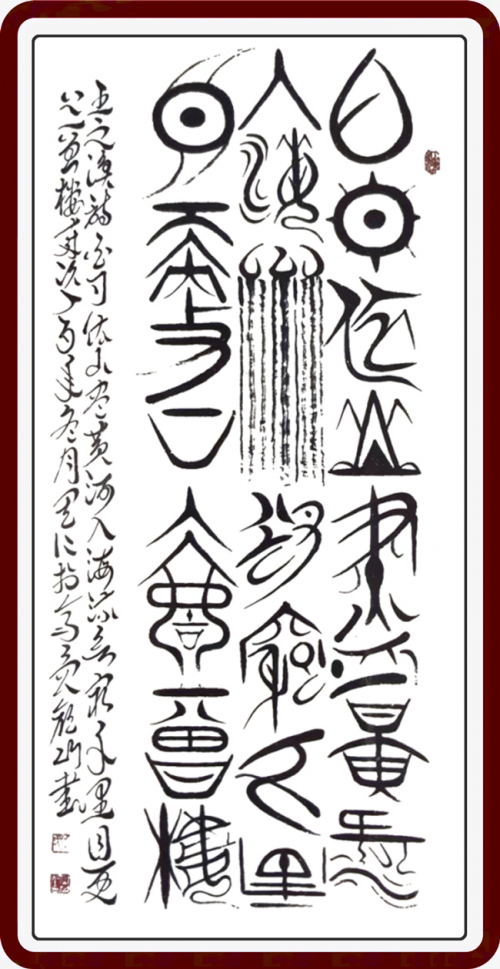 白日依山盡黃河
入海流欲窮千里
目更上一層樓
王之渙詩白日依山盡黃河入海流欲窮千里目更
上一層樓歲次年冬月書